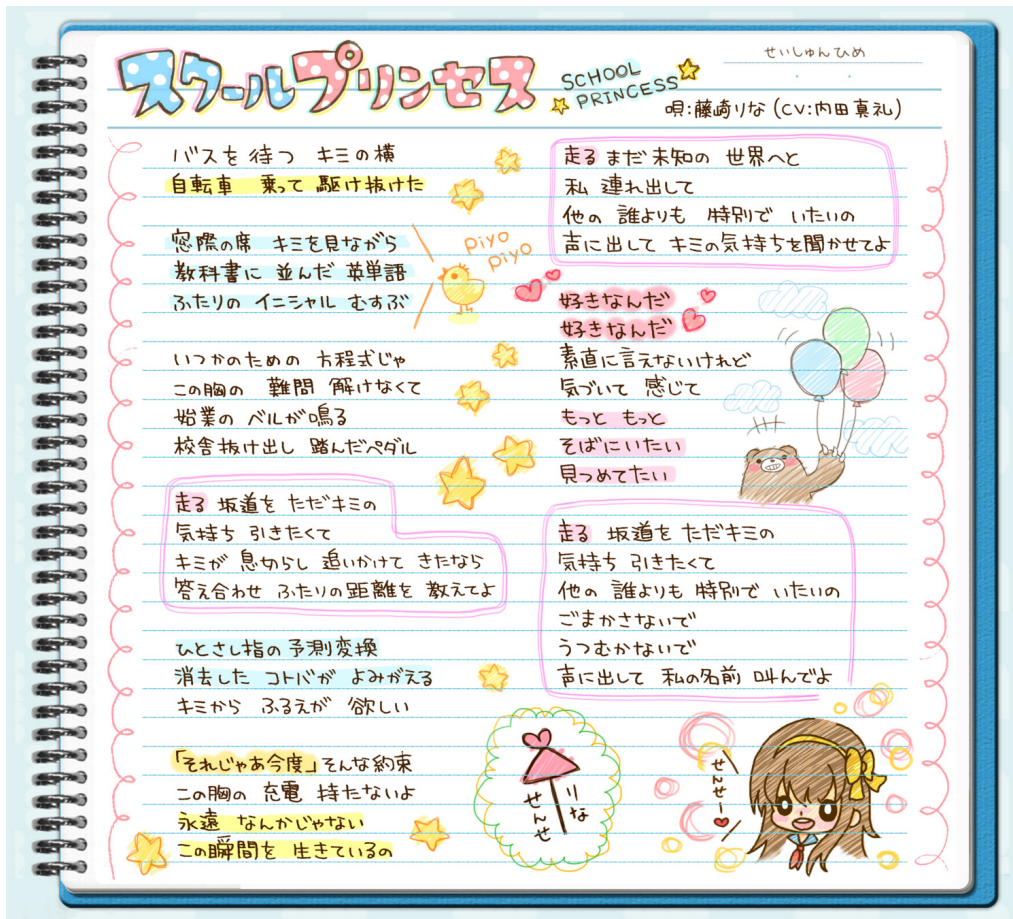 スクールプリンセス
SCHOOL
PRINCESS
せいしゅんひめ
唄:藤崎りな(CV:内田真礼)
バスを待つ キミの横
自転車 乗って 駆け抜けた
窓際の席 キミを見ながら
教科書に 並んだ 英単語
ふたりの イニシャル むすぶ
piyo
piyo
いつかのための 方程式じゃ
この胸の 難問 解けなくて
始業の ベルが鳴る
校舎抜け出し 踏んだペダル
走る 坂道を ただキミの
気持ち 引きたくて
キミが 息切らし 追いかけて きたなら
答え合わせ ふたりの距離を 教えてよ
ひとさし指の予測変換
消去した コトバが よみがえる
キミから ふるえが 欲しい
「それじゃあ今度」そんな約束
この胸の 充電 持たないよ
永遠 なんかじゃない
この瞬間を 生きているの
走る まだ 未知の 世界へと
私 連れ出して
他の 誰よりも 特別で いたいの
声に出して キミの気持ちを聞かせてよ
好きなんだ
好きなんだ
素直に言えないけれど
気づいて 感じて
もっと もっと
そばにいたい
見つめてたい
走る 坂道を ただキミの
気持ち 引きたくて
他の 誰よりも 特別で いたいの
ごまかさないで
うつむかないで
声に出して 私の名前 叫んでよ
りな
せんせ
せんせー